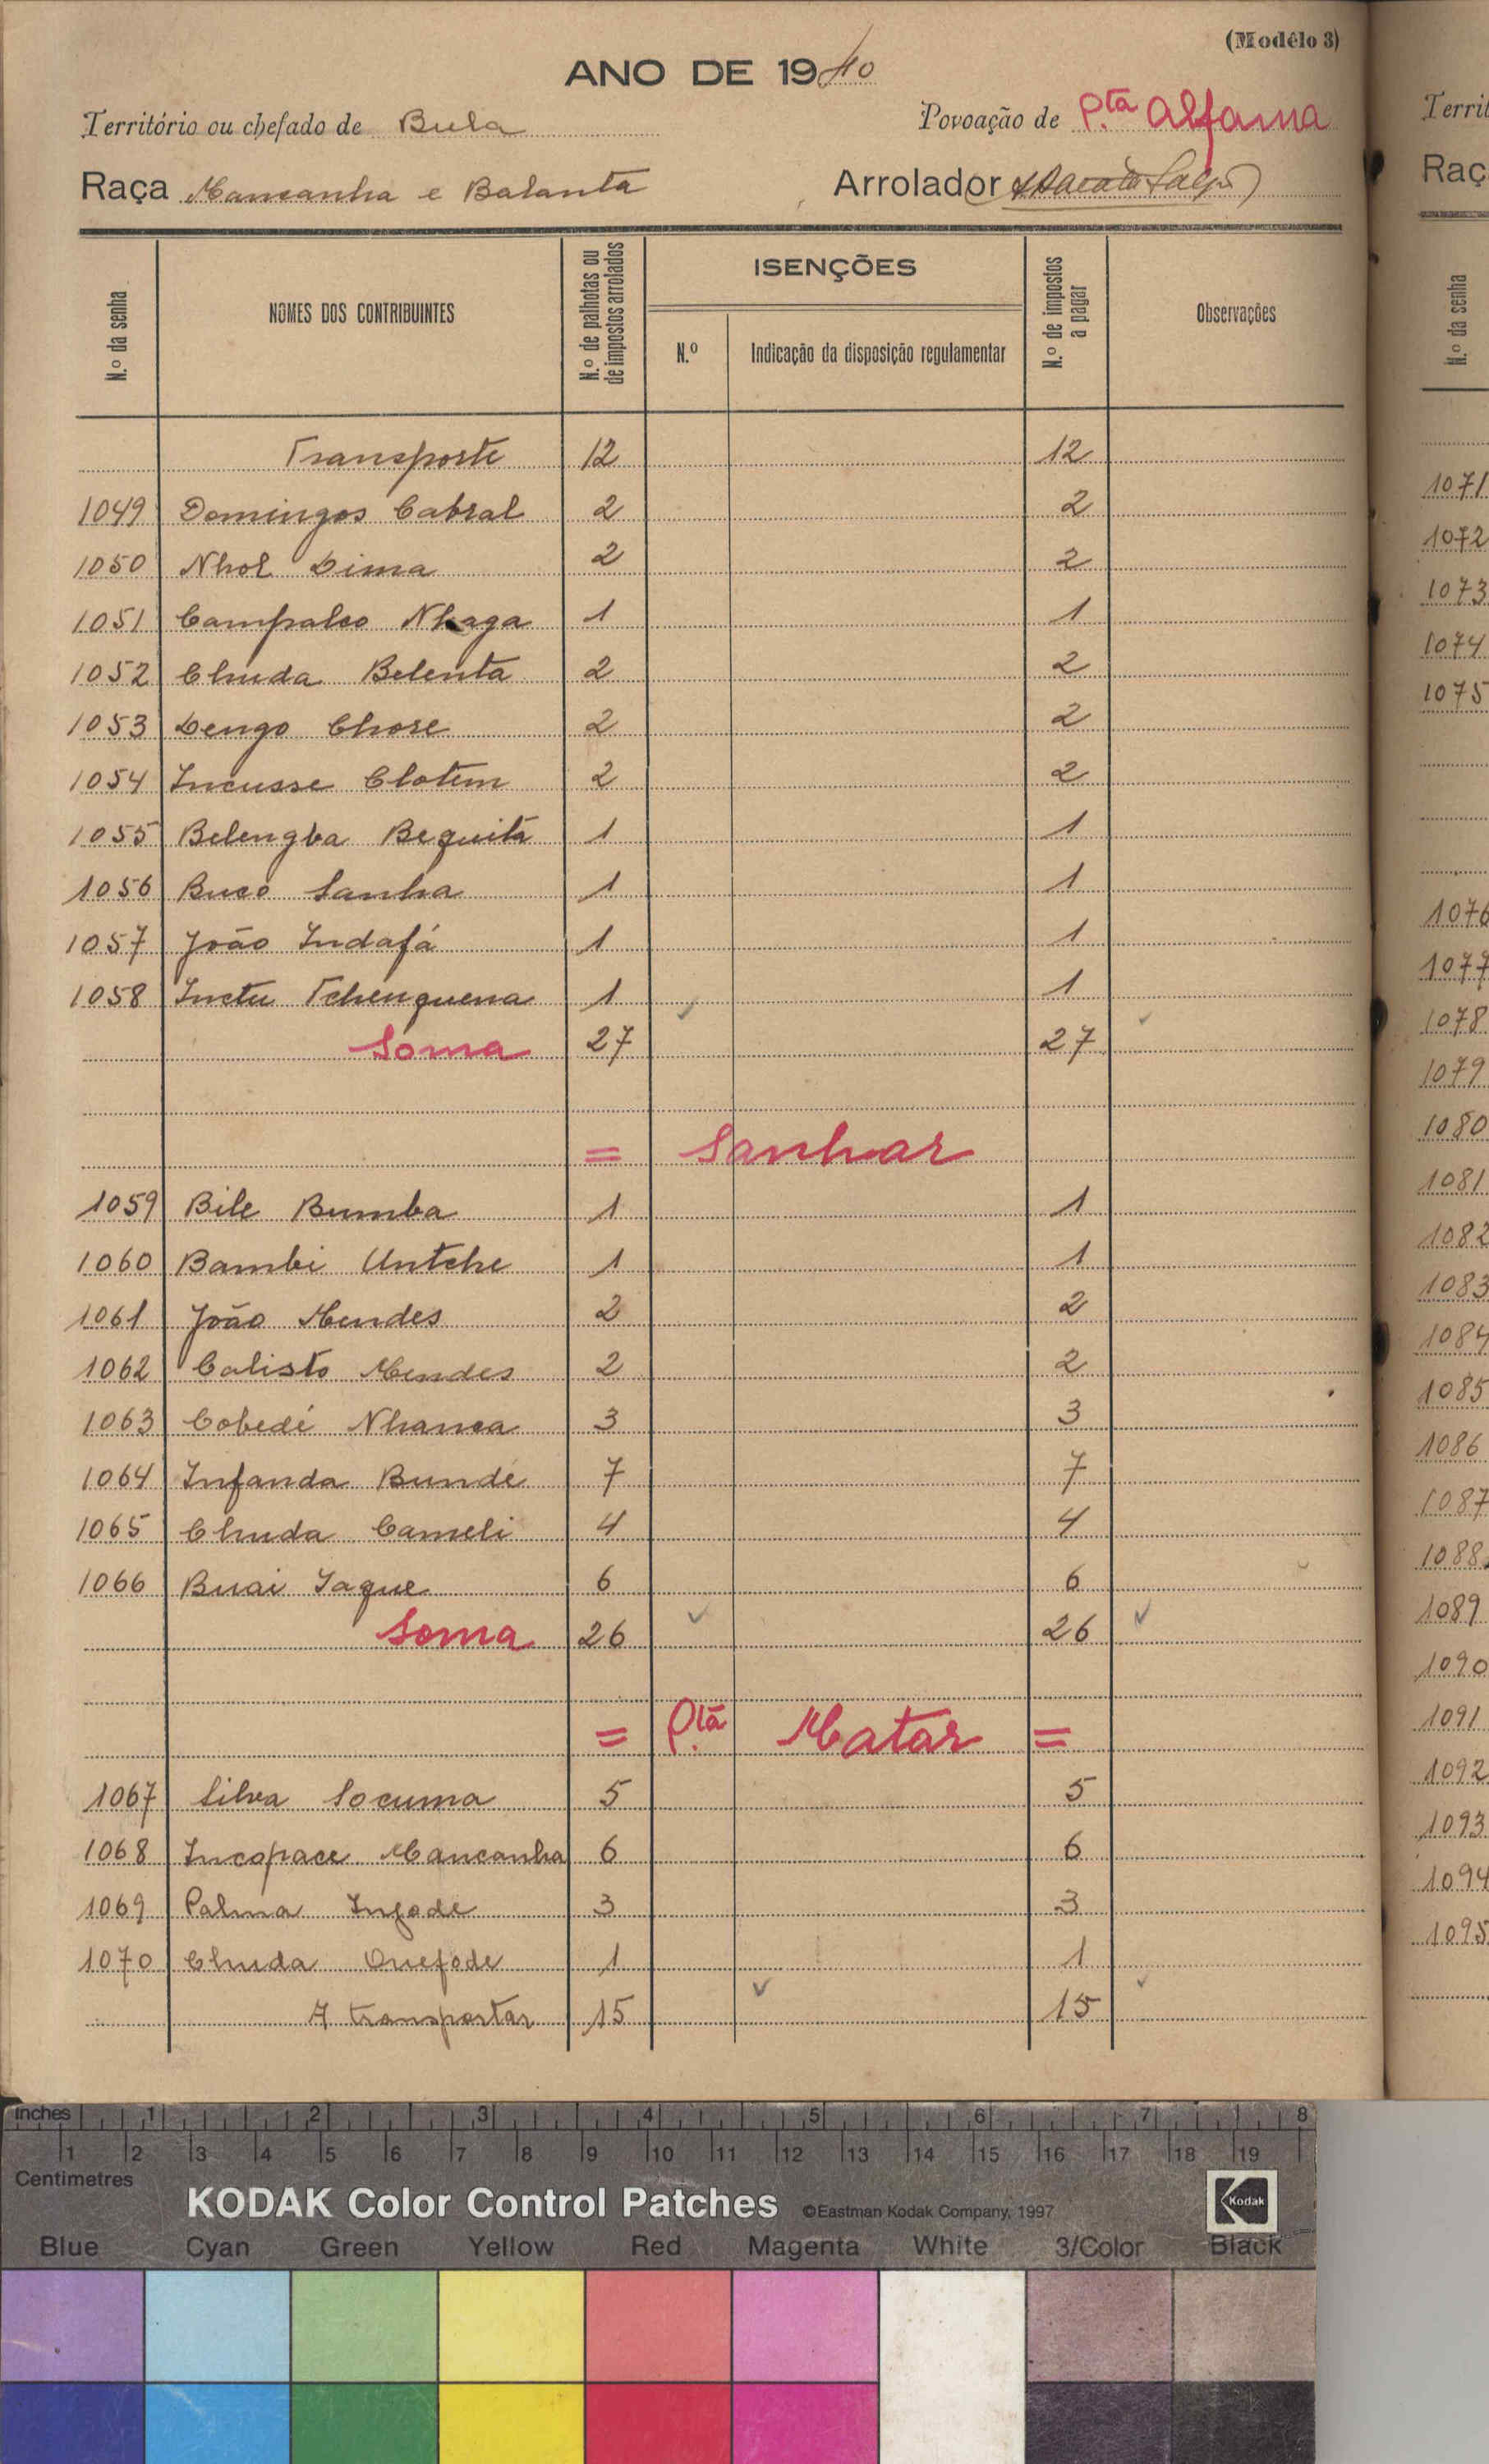 (Modêlo 3)
ANO DE 1940
Território ou chefado de Bula
Povoação de P.ta Alfama
Raça Mancanha e Balanta
Arrolador
N.º da senha
NOMES DOS CONTRIBUINTES
N.º de palhotas ou de impostos arrolados
ISENÇÕES
N.º
Indicação da disposição regulamentar
N.º de impostos a pagar
Observações
Transporte 12 12
1049 Domingos Cabral 2 2
1050 Nhol Dima 2 2
1051 Campalco Nhaga 1 1
1052 Chuda Belenta 2 2
1053 Dengo Chore 2 2
1054 Incusse Clotem 2 2
1055 Belengba Bequitá 1 1
1056 Bucó Sanha 1 1
1057 João Indafá 1 1
1058 Inctu Tchenquena 1 1
Soma 27 27
= Sanhar
1059 Bile Bumba 1 1
1060 Bambi Untche 1 1
1061 João Mendes 2 2
1062 Calisto Mendes 2 2
1063 Cobedé Nhanca 3 3
1064 Infanda Bundé 7 7
1065 Chuda Cameli 4 4
1066 Buai Iaque 6 6
Soma 26 26
= P.ta Matar =
1067 Silva Socuma 5 5
1068 Incopace Mancanha 6 6
1069 Palma Infode 3 3
1070 Chuda Quefode 1 1
A transportar 15 15
Territ
Raç
N.º da senha
1071
1072
1073
1074
1075
1076
1077
1078
1079
1080
1081
1082
1083
1084
1085
1086
1087
1088
1089
1090
1091
1092
1093
1094
1095
inches 1 2 3 4 5 6 7 8
1 2 3 4 5 6 7 8 9 10 11 12 13 14 15 16 17 18 19
Centimetres
KODAK Color Control Patches ©Eastman Kodak Company, 1997 Kodak
Blue Cyan Green Yellow Red Magenta White 3/Color Black